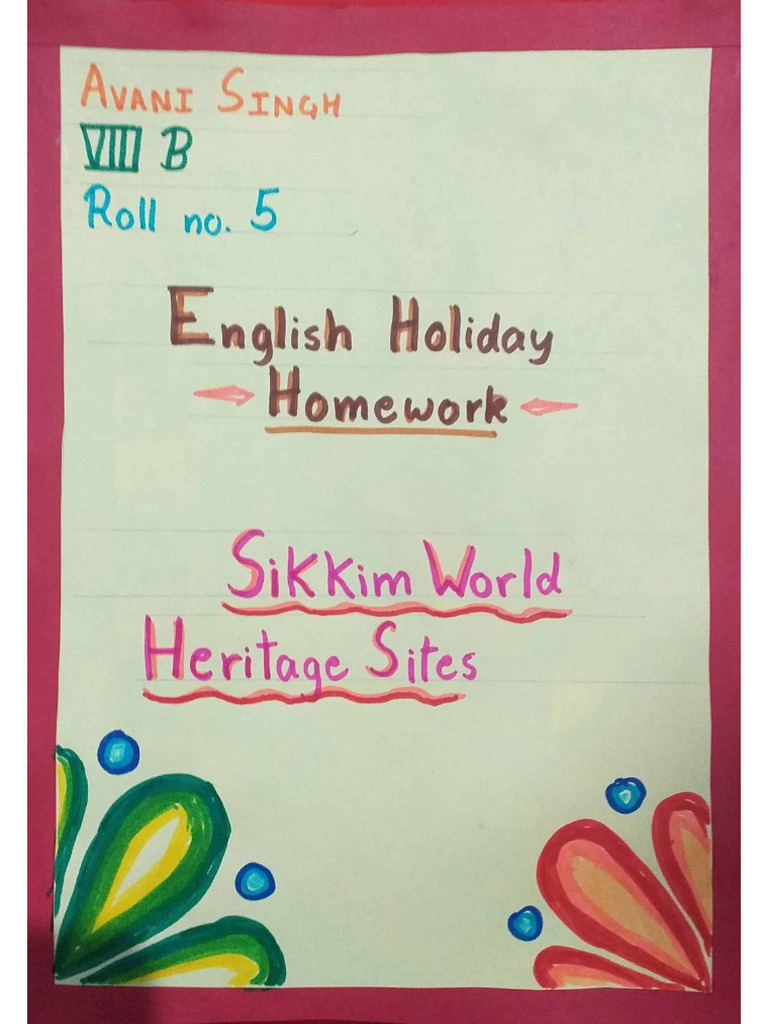 AVANI SINGH
VIII B
Roll no. 5
English Holiday
Homework
Sikkim World
Heritage Sites